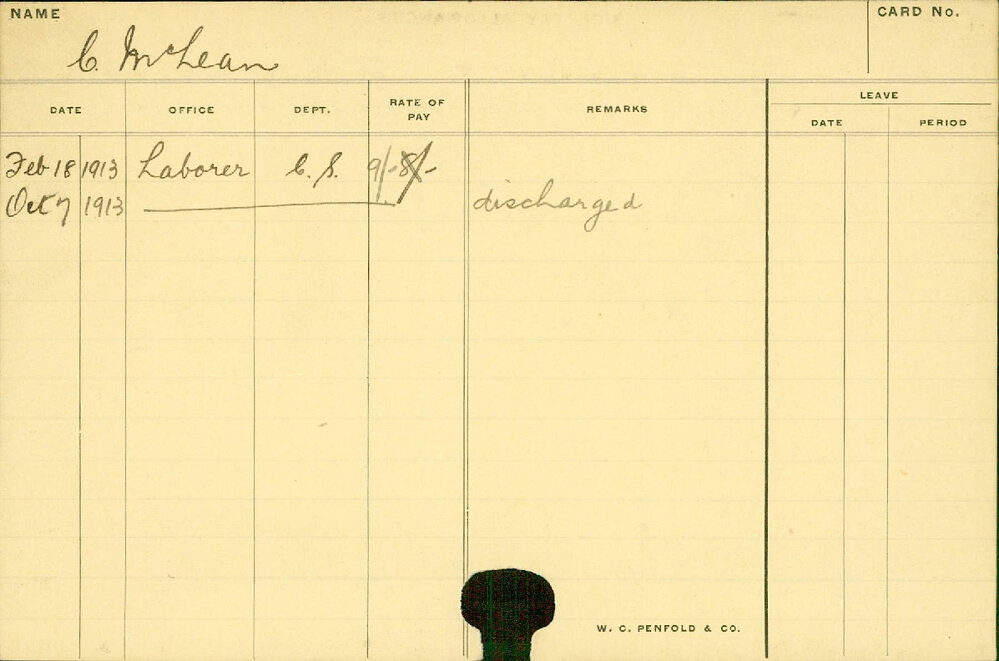 NAME
C. McLean
CARD No.
DATE OFFICE DEPT. RATE OF PAY REMARKS LEAVE
DATE PERIOD
Feb 18 1913 Laborer C. S. 9/- 8/-
Oct 7 1913 discharged
W. C. PENFOLD & CO.